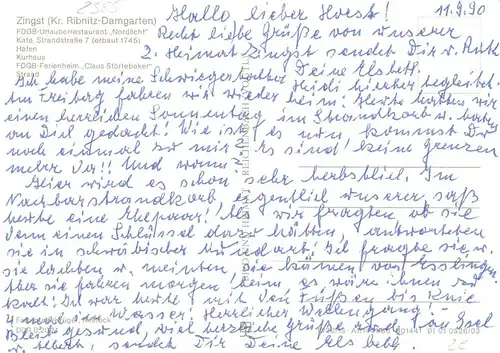 Zingst (Kr. Ribnitz-Damgarten)
FDGB-Urlauberrestaurant „Nordlicht"
Kate, Strandstraße 7 (erbaut 1745)
Hafen
Kurhaus
FDGB-Ferienheim „Claus Störtebeker"
Strand
11.9.90
Hallo lieber Horst!
Recht liebe Grüße von unserer
2. Heimat Zingst sendet Dir u. Ruth
Deine Elsbeth.
Ich habe meine Schwiegertochter Heidi hierher begleitet.
Am Freitag fahren wir wieder heim! Heute hatten wir
einen herrlichen Sonnentag im Strandkorb u. haben
an Dich gedacht! Wie ist es nun, kommst Du
noch einmal zu mir? Es sind keine Grenzen
mehr da!! Und wann?
Hier wird es schon sehr herbstlich. Im
Nachbarstrandkorb, eigentlich unserer saß
heute eine Ehepaar! Als wir fragten ob sie
denn einen Schlüssel dazu hätten, antworteten
sie in schwäbischer Mundart! Ich fragte sie, u.
sie lachten u. meinten, sie kämen von Esslingen
aber sie fahren morgen heim es wäre ihnen zu
kalt! Ich war heute mit den Füßen bis Knie
4 mal im Wasser! Herrlicher Wellengang!
Bleib gesund, viel herzliche Grüße
sendet Dir Deine Elsbeth.